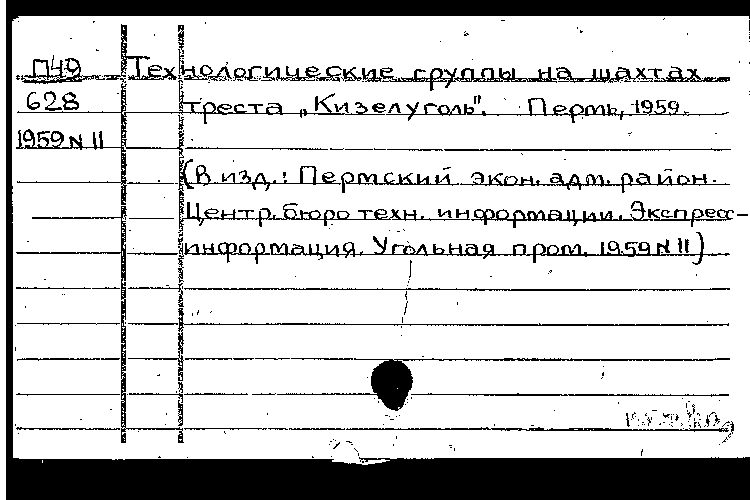 П49 Технологические группы на шахтах
628 треста „Кизелуголь". Пермь, 1959.
1959 N 11
(В изд.: Пермский экон. адм. район.
Центр. бюро техн. информации. Экспресс-
информация. Угольная пром. 1959 N 11)